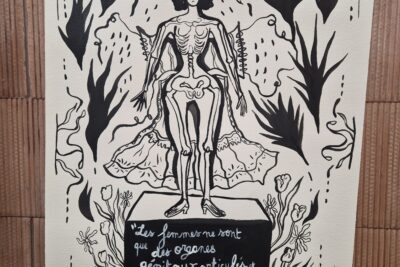 "Les femmes ne sont
que des organes
génitaux articulés